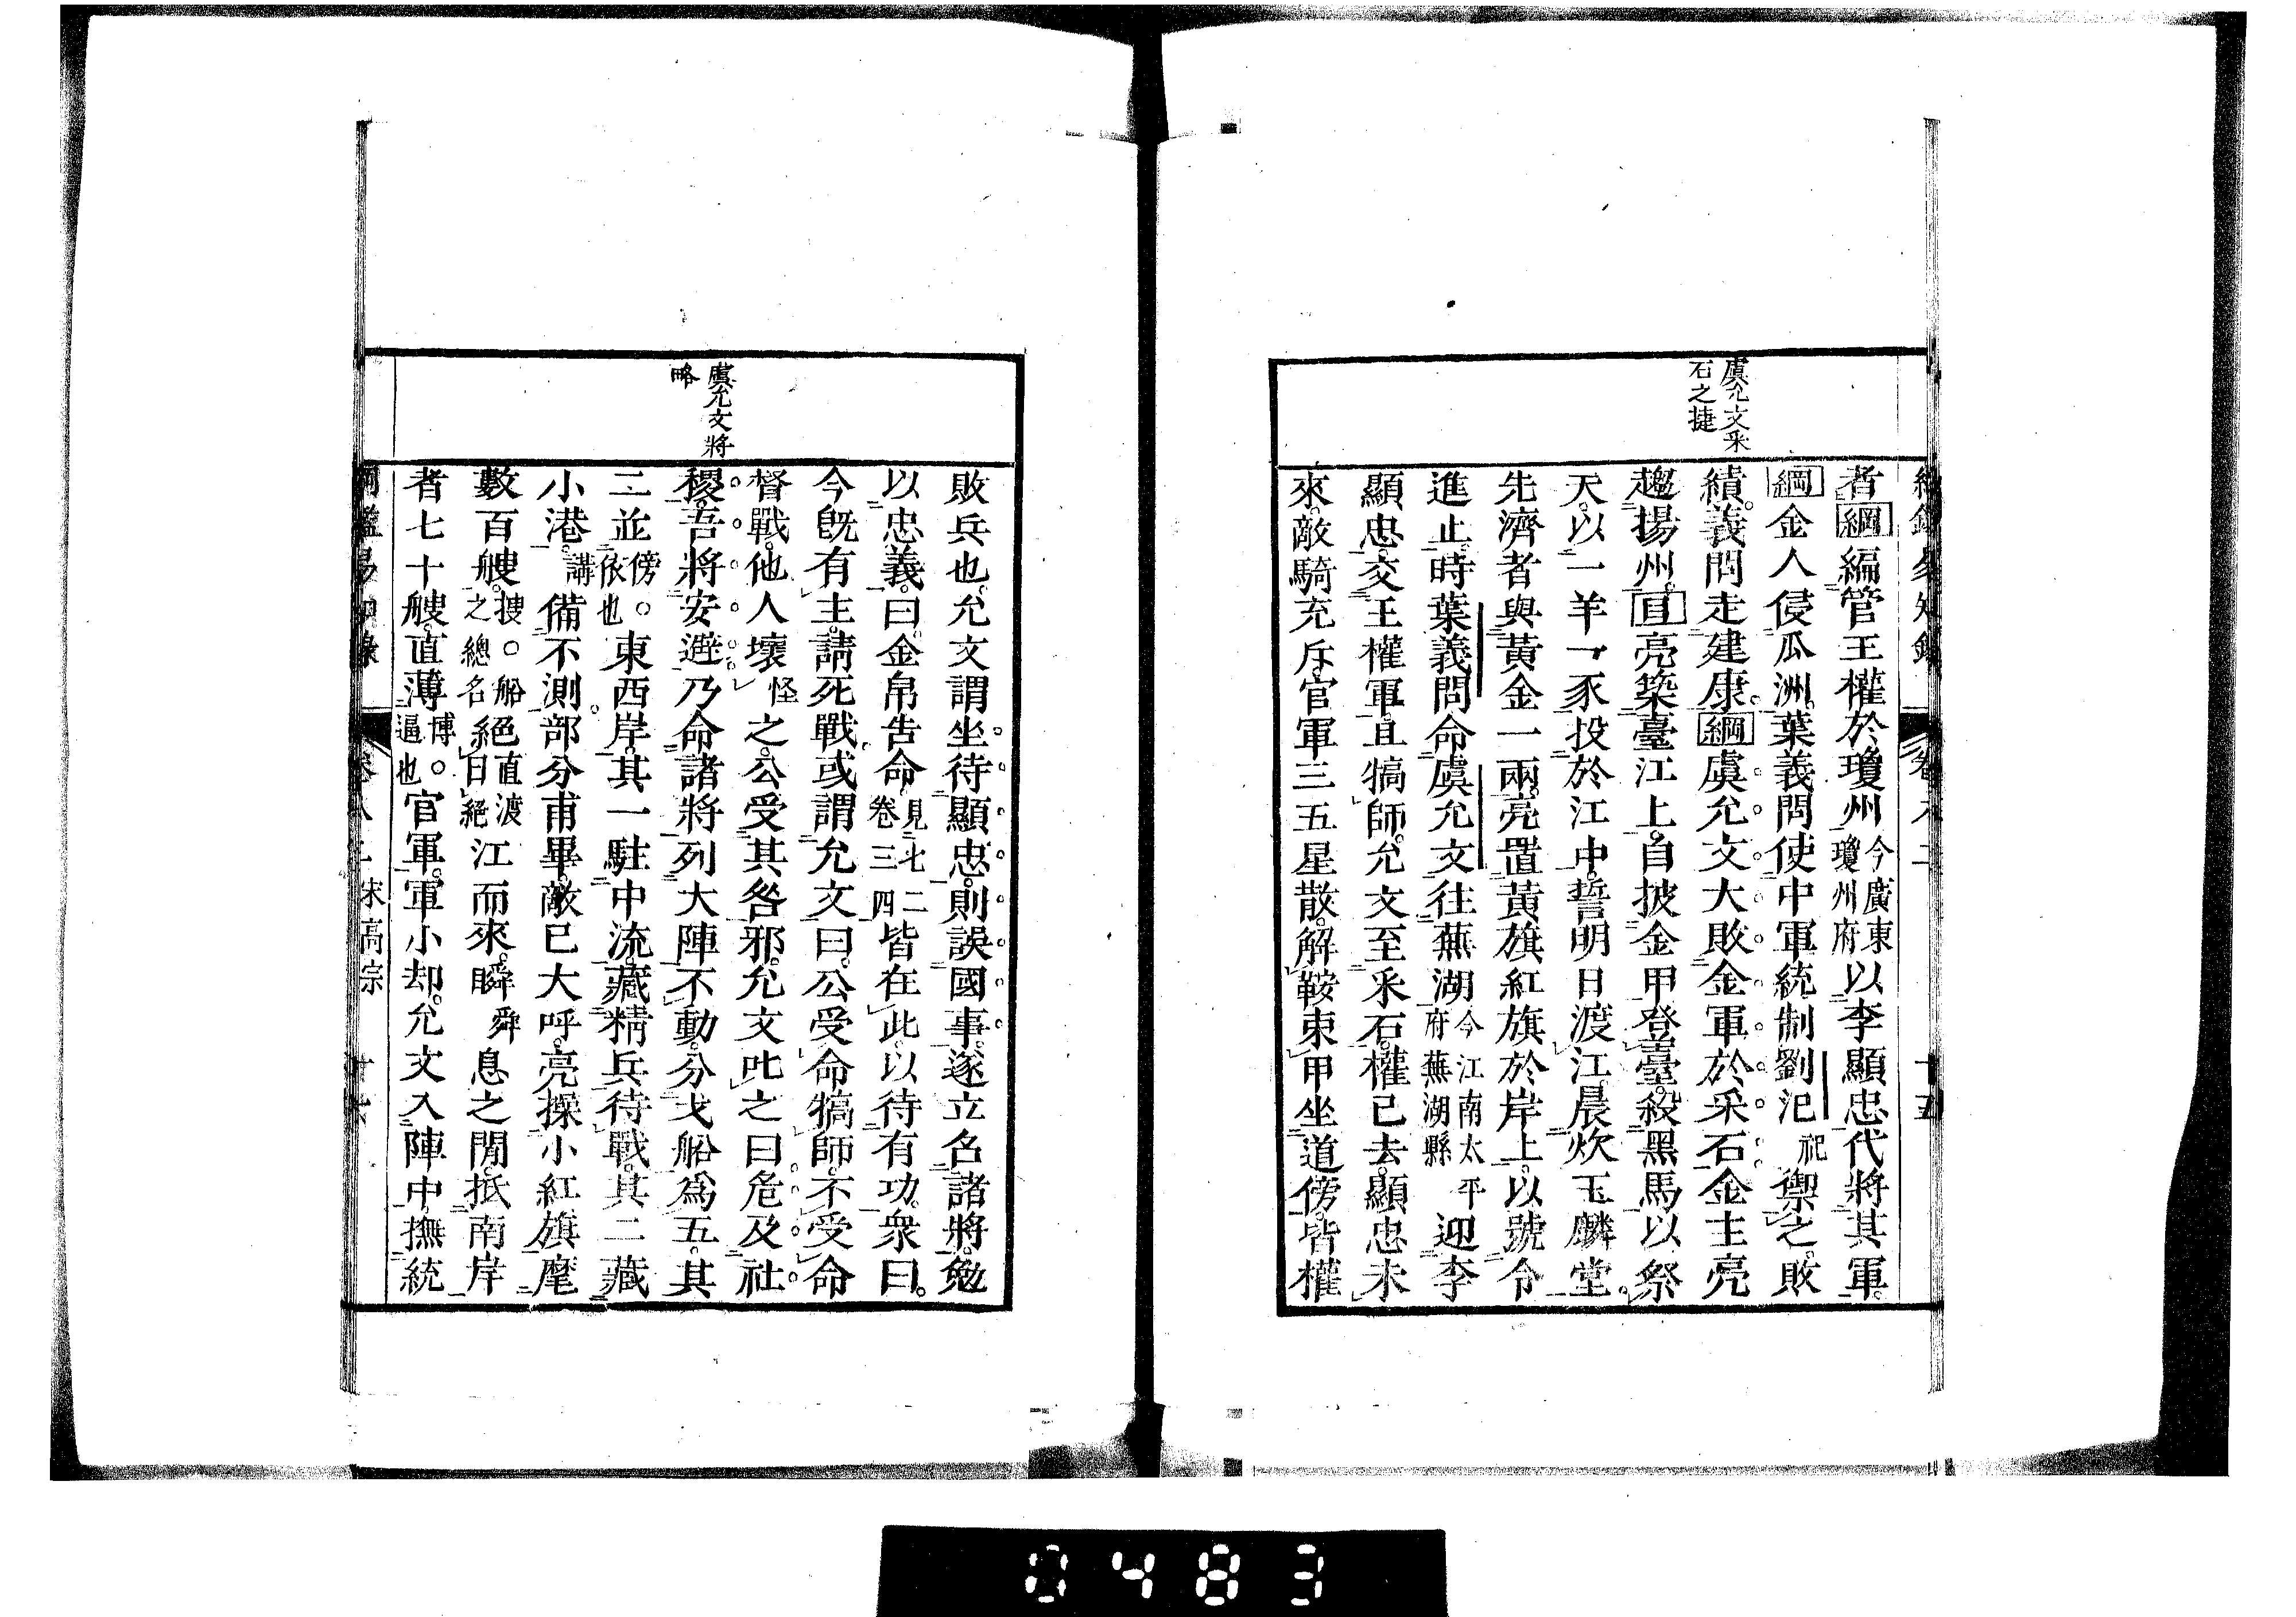 虞允文采
石之捷
者綱編管王權於瓊州今廣東瓊州府以李顯忠代將其軍
綱金人侵瓜洲葉義問使中軍統制劉汜祀禦之敗
績義問走建康綱虞允文大敗金軍於采石金主亮
趨揚州目亮築臺江上自披金甲登臺殺黑馬以祭
天以一羊一豕投於江中誓明日渡江晨炊玉麟堂
先濟者與黃金一兩亮置黃旗紅旗於岸上以號令
進止時葉義問命虞允文往蕪湖今江南太平府蕪湖縣迎李
顯忠交王權軍且犒師允文至采石權已去顯忠未
來敵騎充斥官軍三五星散解鞍束甲坐道傍皆權
虞允文將
略
敗兵也允文謂坐待顯忠則誤國事遂立名諸將勉
以忠義曰金帛告命見七二卷三四皆在此以待有功衆曰
今旣有主請死戰或謂允文曰公受命犒師不受命
督戰他人壞怪之公受其咎邪允文叱之曰危及社
稷吾將安避乃命諸將列大陣不動分戈船爲五其
二並傍。依也東西岸其一駐中流藏精兵待戰其二藏
小港講備不測部分甫畢敵已大呼亮操小紅旗麾
數百艘搜。船之總名絕直渡曰絕江而來瞬舜息之間抵南岸
者七十艘直薄博。逼也官軍軍小却允文入陣中撫統
宋高宗